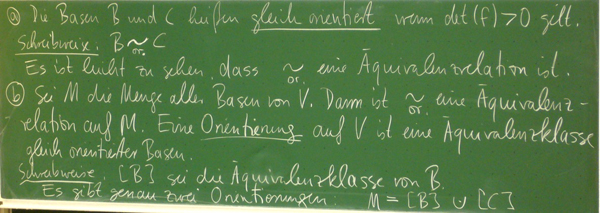 ⓐ Die Basen B und C heißen gleich orientiert wenn det(f)>0 gilt.
Schreibweise: B ~or. C
Es ist leicht zu sehen, dass ~or. eine Äquivalenzrelation ist.
ⓑ Sei M die Menge aller Basen von V. Dann ist ~or. eine Äquivalenz-
relation auf M. Eine Orientierung auf V ist eine Äquivalenzklasse
gleich orientierter Basen.
Schreibweise: [B] sei die Äquivalenzklasse von B.
Es gibt genau zwei Orientierungen: M = [B] ∪ [C]